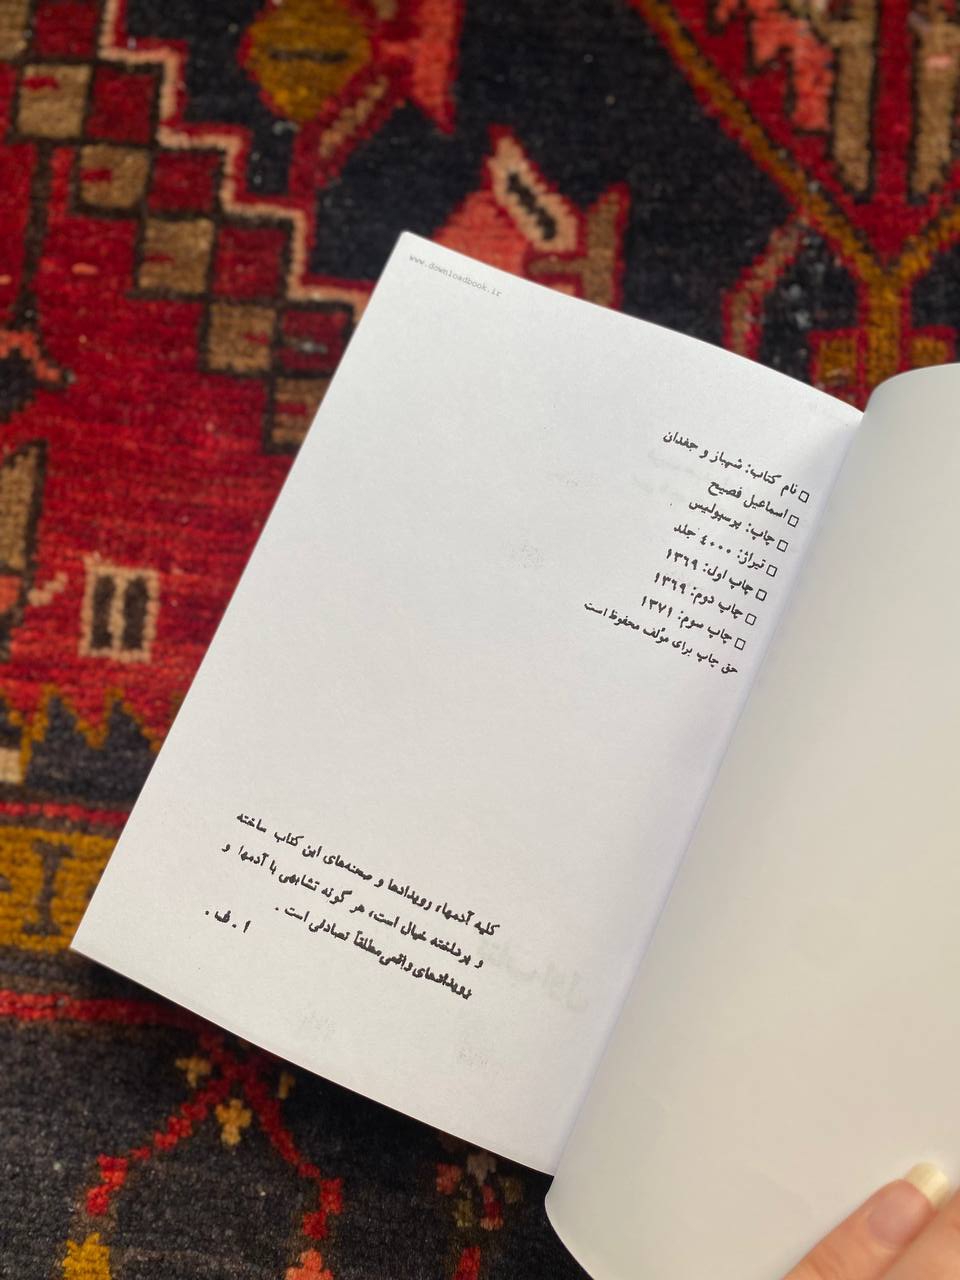 www.downloadbook.ir
□ نام کتاب: شهباز و جغدان
□ اسماعیل فصیح
□ چاپ: پرسپولیس
□ تیراژ: ٤٠٠٠ جلد
□ چاپ اول: ١٣٦٩
□ چاپ دوم: ١٣٦٩
□ چاپ سوم: ١٣٧١
حق چاپ برای مؤلف محفوظ است
کلیه آدمها، رویدادها و صحنه‌های این کتاب ساخته
و پرداخته خیال است، هر گونه تشابهی با آدمها و
رویدادهای واقعی مطلقاً تصادفی است .
ا . ف .